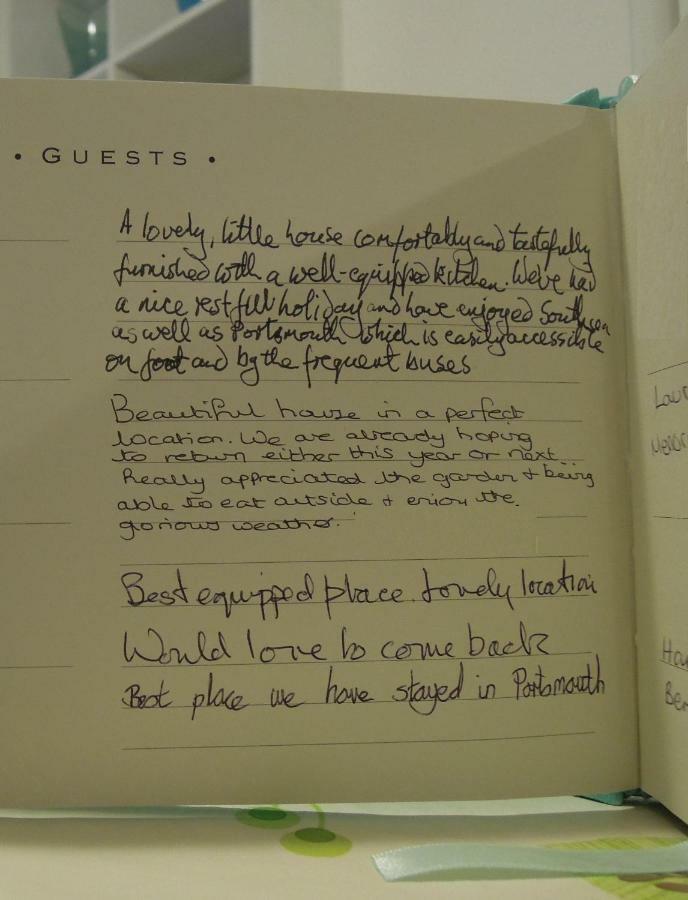 • GUESTS •
A lovely, little house comfortably and tastefully
furnished with a well-equipped kitchen. We've had
a nice restfull holiday and have enjoyed Southsea
as well as Portsmouth which is easily accessible
on foot and by the frequent buses
Beautiful house in a perfect
location. We are already hoping
to return either this year or next.
Really appreciated the garden + being
able to eat outside + enjoy the
gorious weather.
Best equipped place. Lovely location
Would love to come back
Best place we have stayed in Portsmouth